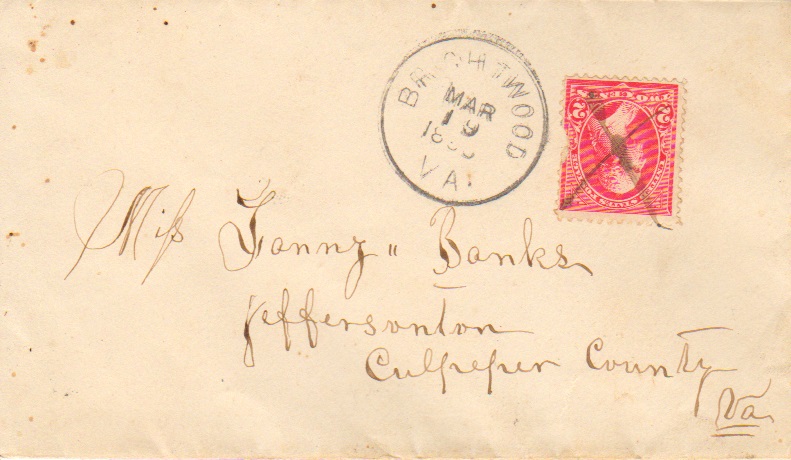 BRIGHTWOOD
MAR
19
VA.
2 2
Miss Fanny " Banks
Jeffersonton
Culpeper County
Va.